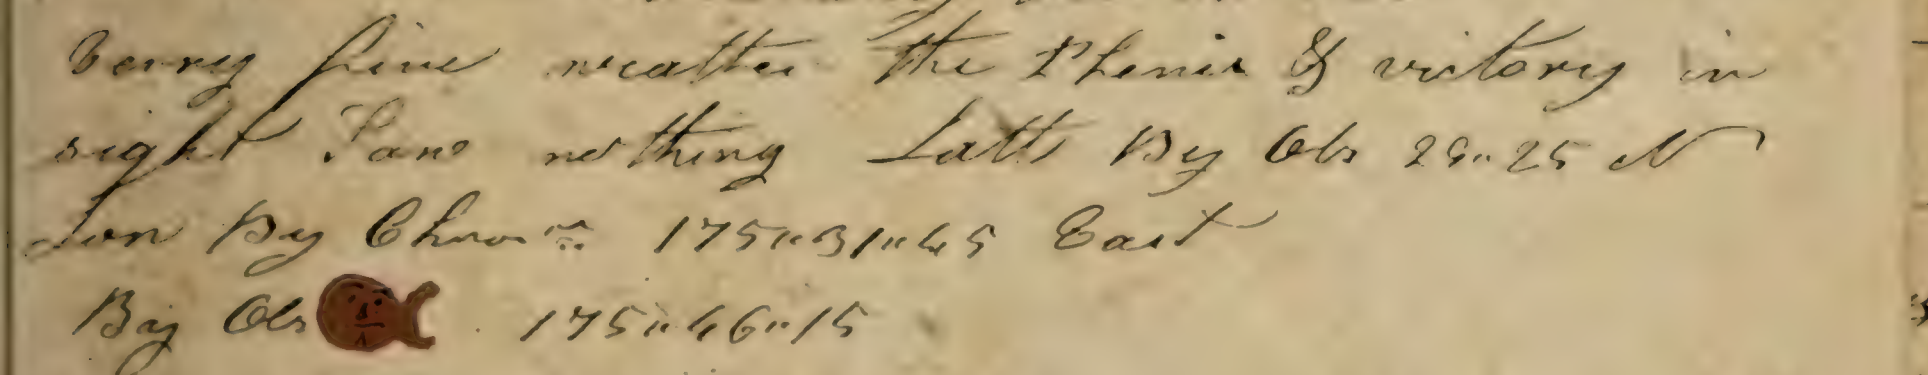 Verry fine weatther the Phenix & victory in
sight Saw nothing Latt By Obs 29"25 N
Lon By Chrom 175"31"45 East
By Obs 175"46"15